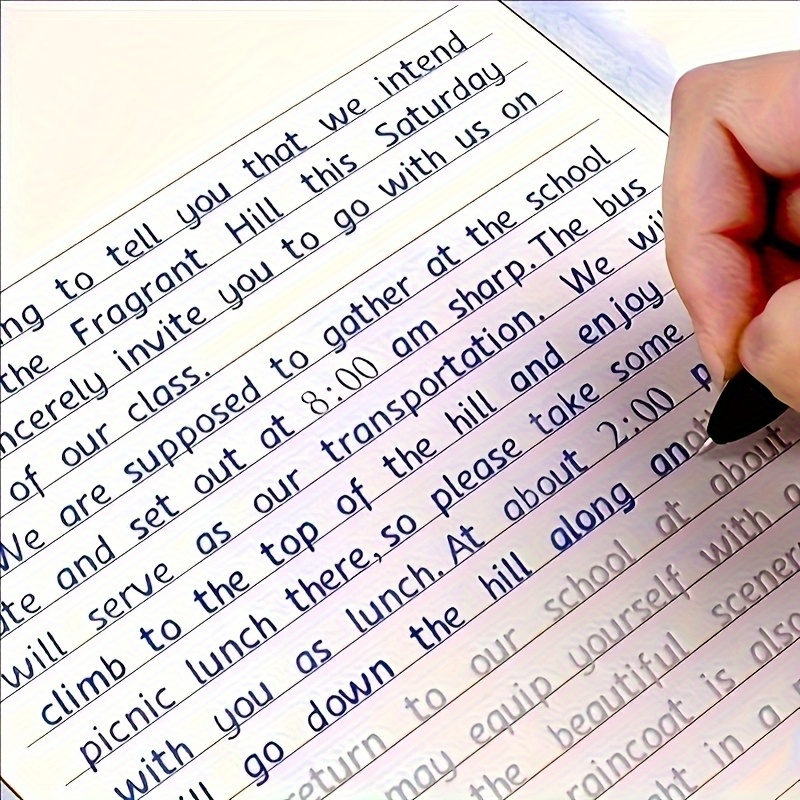 ng to tell you that we intend
the Fragrant Hill this Saturday
ncerely invite you to go with us on
of our class.
We are supposed to gather at the school
ate and set out at 8:00 am sharp. The bus
will serve as our transportation. We wil
climb to the top of the hill and enjoy
picnic lunch there, so please take some
with you as lunch. At about 2:00 p
ill go down the hill along anoth
return to our school at about
may equip yourself with a
the beautiful scenery
raincoat is also
ght in a